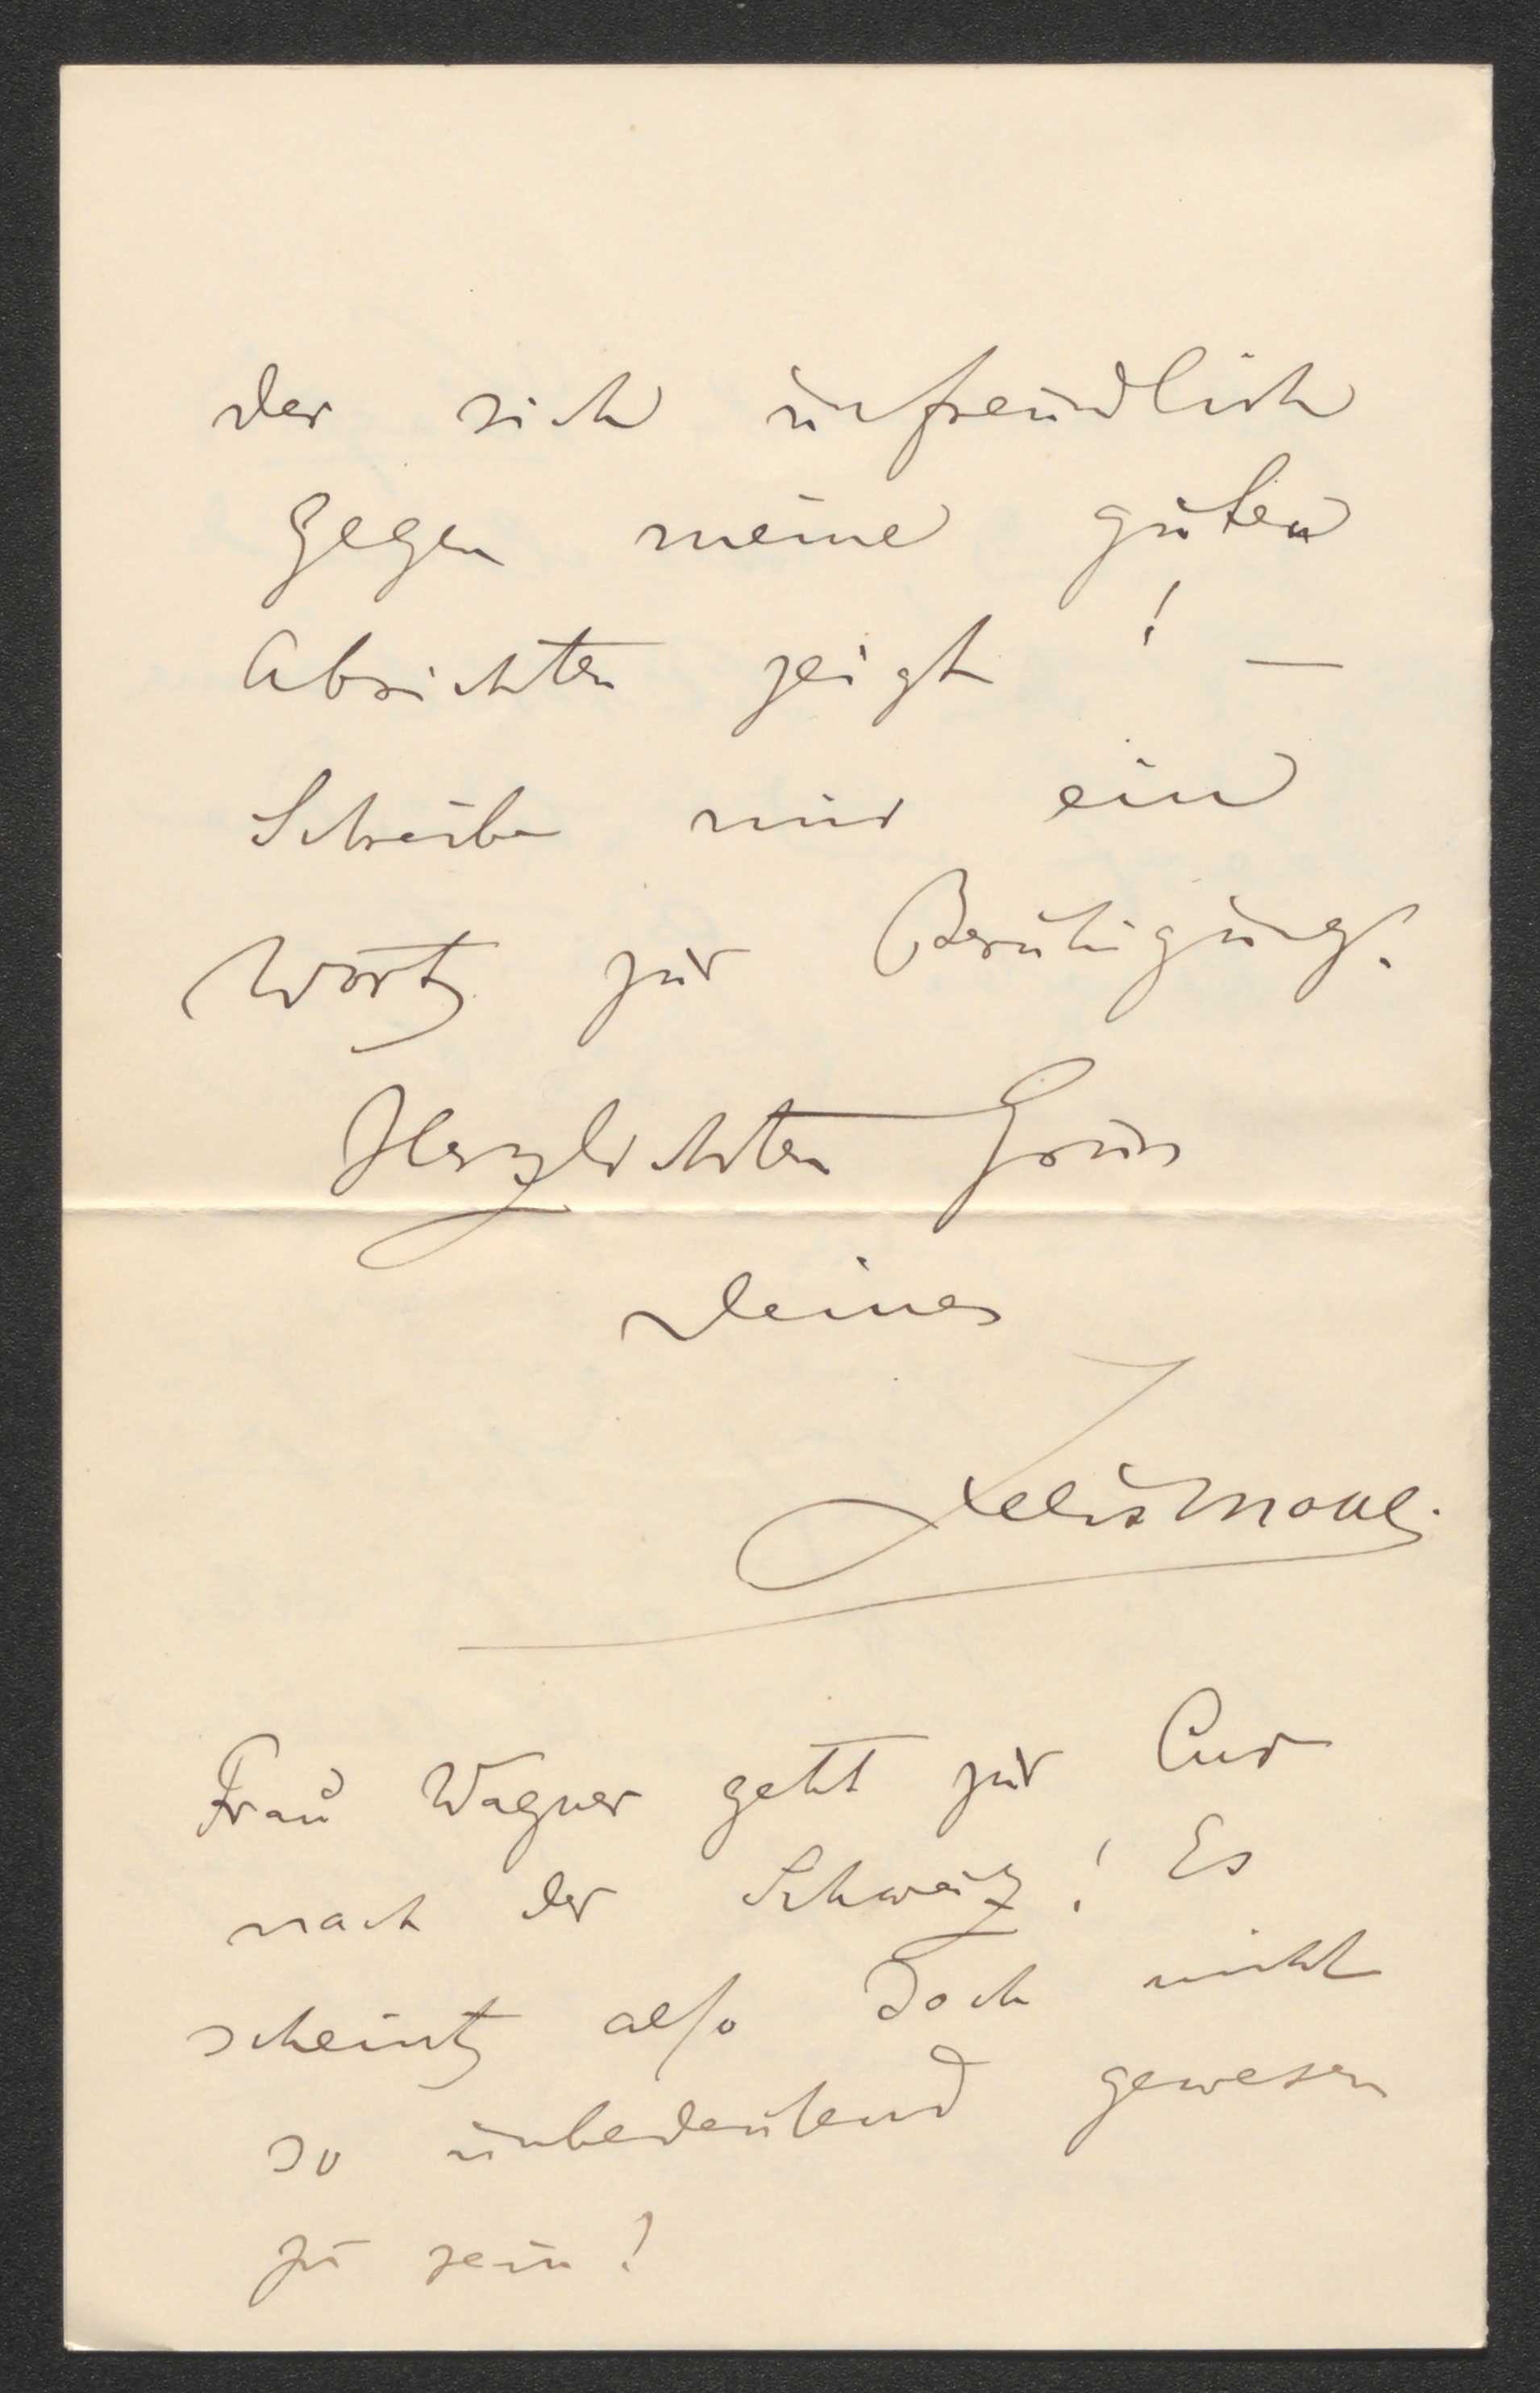 der sich unfreundlich
gegen meine guten
Absichten zeigt! —
Schreibe mir ein
Wort zur Beruhigung.
Herzlichsten Gruss
Deines
Felix Mottl.
Frau Wagner geht zur Cur
nach der Schweiz! Es
scheint also doch nicht
so unbedeutend gewesen
zu sein!